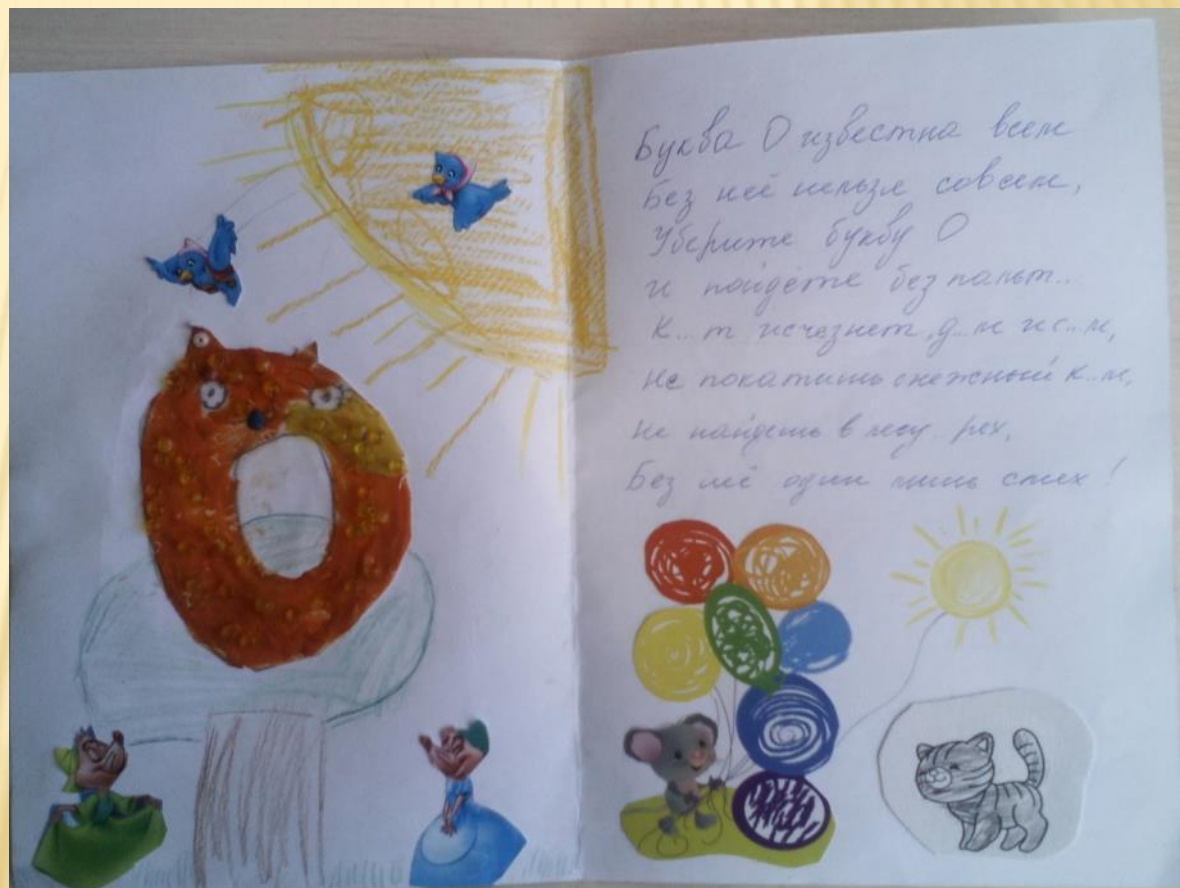 Буква О известна всем
Без неё нельзя совсем,
Уберите букву О
и пойдёте без пальт..
К...т исчезнет, д...м и с...м,
Не покатишь снежный к...м,
Не найдешь в лесу ..рех,
Без неё один лишь смех!